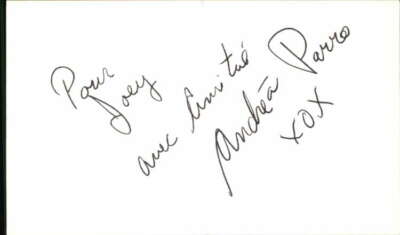 Pour
Joey
avec Amitié
Andréa Parro
XOX